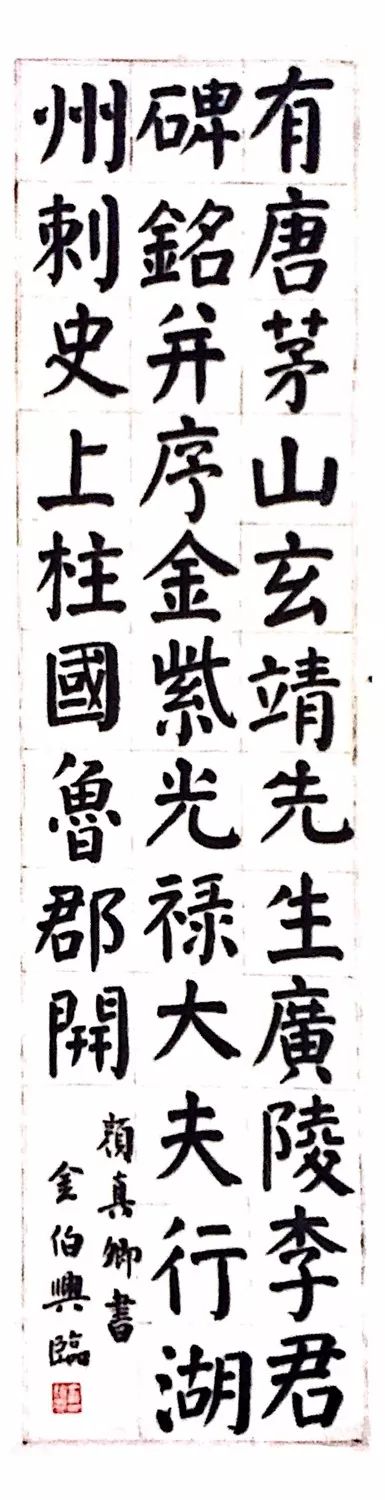 有唐茅山玄靖先生廣陵李君
碑銘并序金紫光禄大夫行湖
州刺史上柱國魯郡開
顏真卿書
金伯興臨